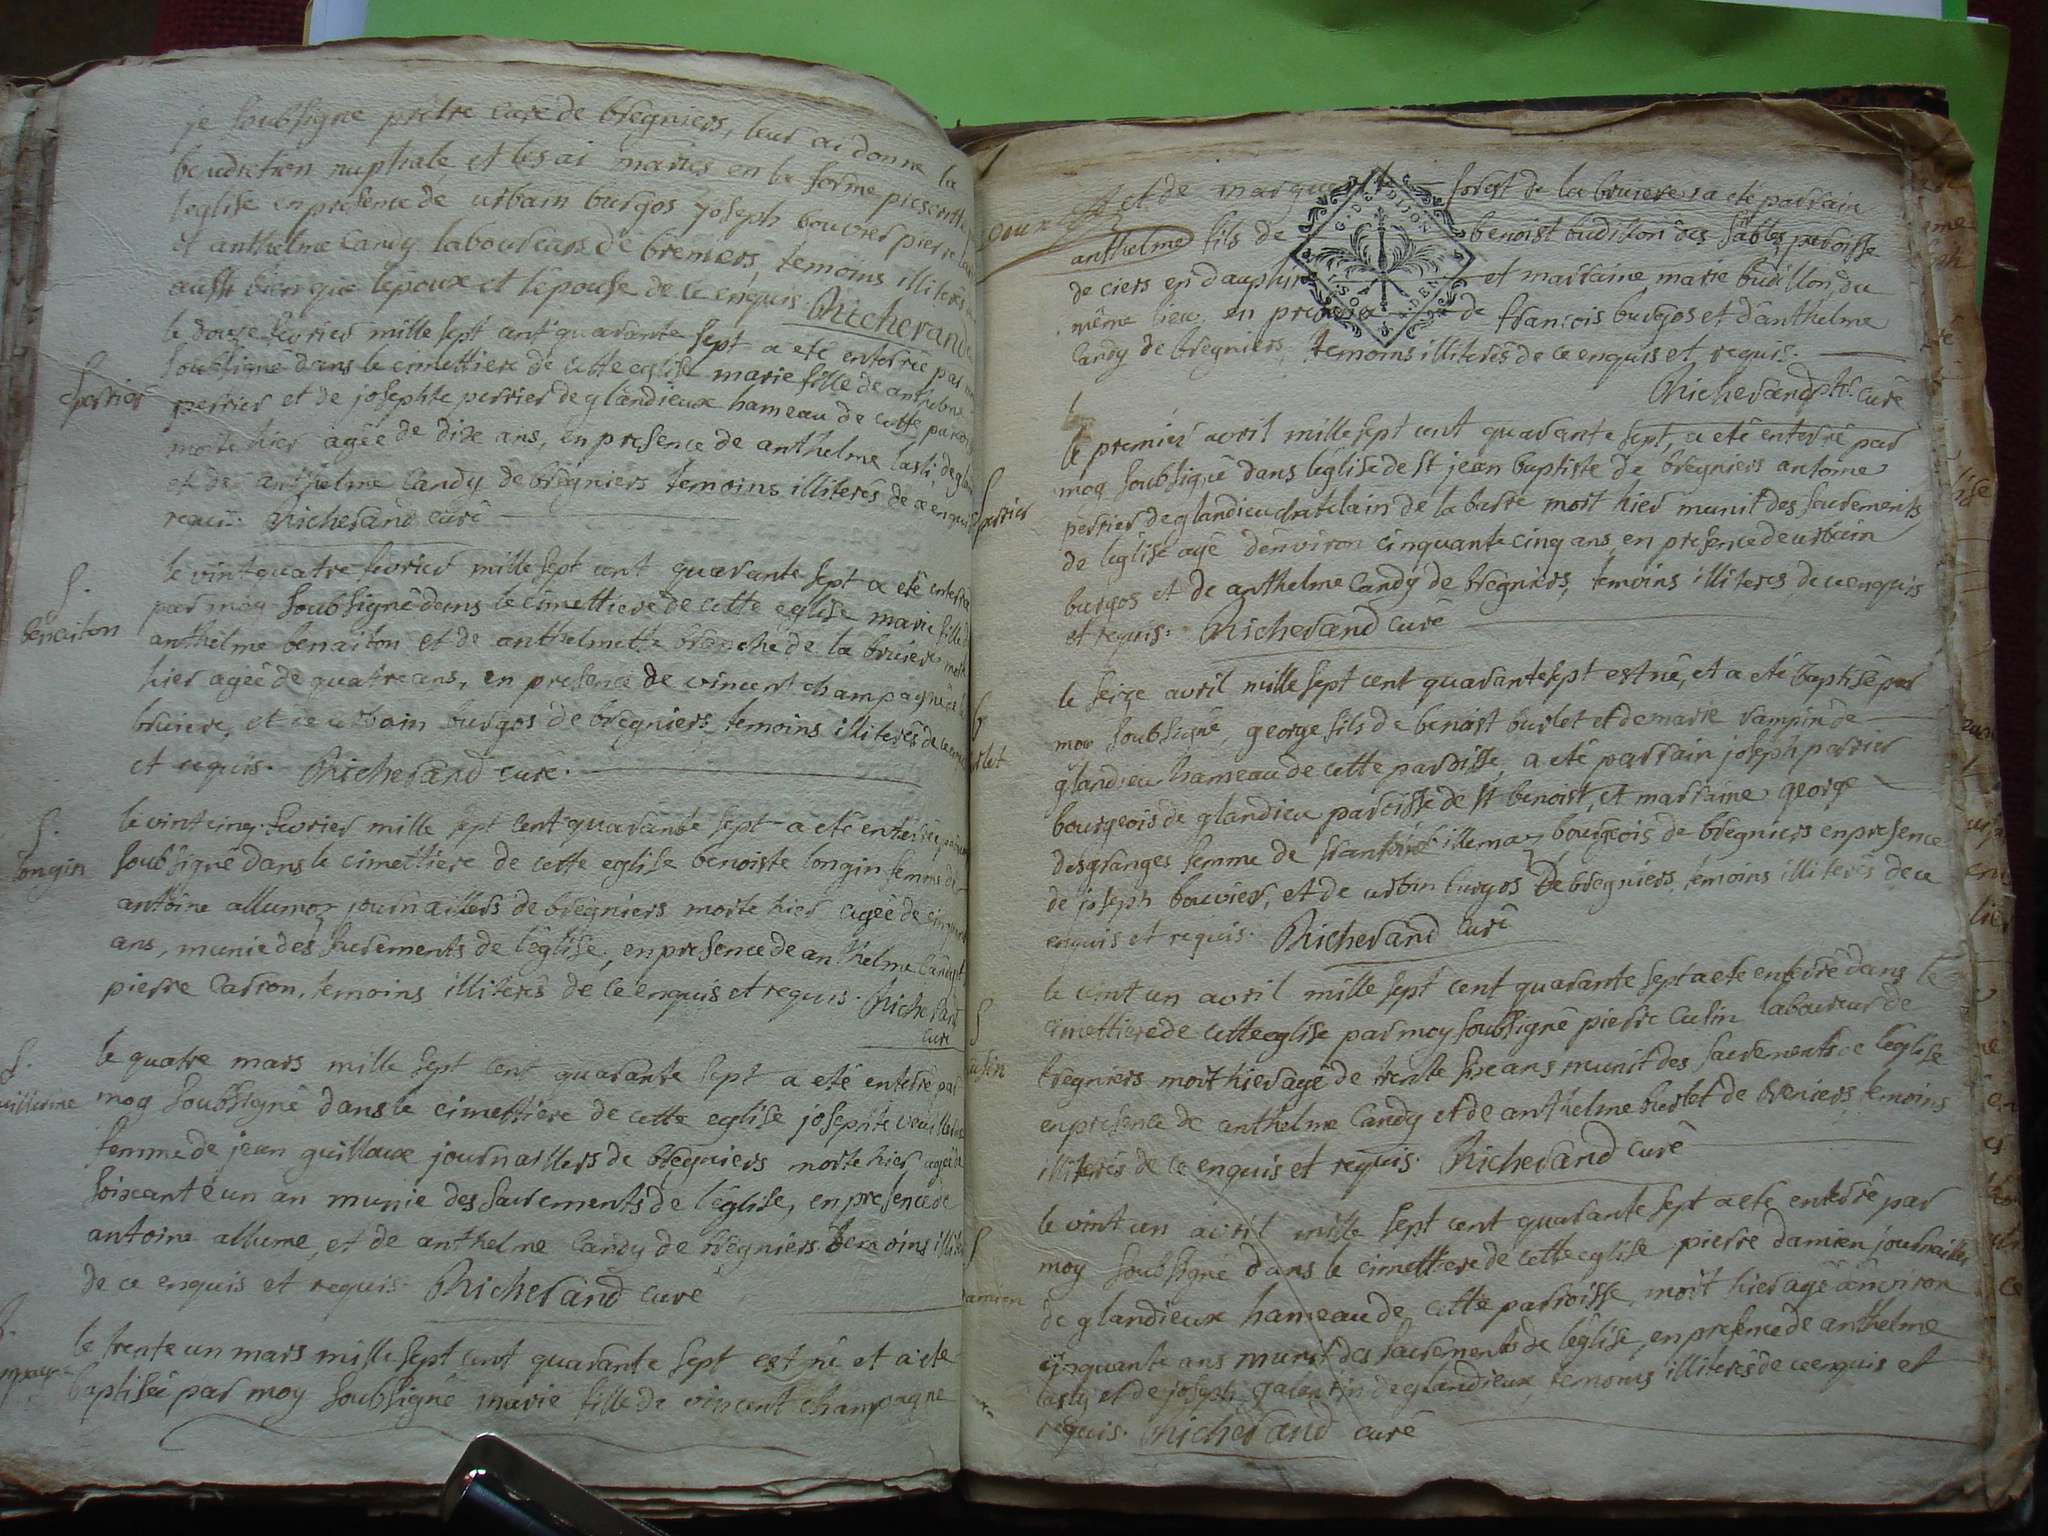 je soubsigné prêtre curé de bregniers, leur ai donné la
benediction nuptiale, et les ai mariés en la forme prescritte
l'eglise en presence de urbain burgos joseph bouvier pierre
et anthelme Candy laboureurs de breniers, temoins illiterés
aussi bien que l'epoux et l'epouse de ce enquis. Richerand
le douze fevrier mille sept cent quarante sept a eté enterrée par
perrier
soubsigné dans le cimettiere de cette eglise marie fille de anthelme
perrier et de josephte perrier de glandieux hameau de cette paroisse
morte hier agée de dix ans, en presence de anthelme lasti, de
et de anthelme Candy de bregniers temoins illiterés de ce enquis
requis. Richerand curé
S.
benaiton
le vint quatre fevrier mille sept cent quarante sept a eté enterrée
par moy soubsigné dans le cimettiere de cette eglise marie fille
anthelme benaiton et de anthelmette de la bruiere morte
hier agée de quatre ans, en presence de vincent champagne
bruiere, et de urbain burgos de bregniers temoins illiterés de ce enquis
et requis. Richerand curé.
S.
longin
le vint cinq fevrier mille sept cent quarante sept a eté enterrée par
soubsigné dans le cimettiere de cette eglise benoiste longin femme de
antoine allumoz journaillers de bregniers morte hier agée de
ans, munie des sacrements de l'eglise, en presence de anthelme Candy et
pierre Carron, temoins illiterés de ce enquis et requis. Richerand
curé
S.
le quatre mars mille sept cent quarante sept a eté enterré par
moy soubsigné dans le cimettiere de cette eglise josephte
femme de jean guillaux journaillers de bregniers morte hier agée de
soixante un an munie des sacrements de l'eglise, en presence de
antoine allume, et de anthelme Candy de bregniers temoins
de ce enquis et requis. Richerand curé
le trente un mars mille sept cent quarante sept est né et a eté
baptisée par moy soubsigné marie fille de vincent champagne
et de forest de la bruiere a eté parrain
anthelme fils de benoist budillon des sables paroisse
G.D.DIJON
de ciers en dauphine et marraine marie budillon du
même lieu, en presence de francois burgos et d'anthelme
Candy de bregniers, temoins illiterés de ce enquis et requis.
Richerand ptre curé
le premier avril mille sept cent quarante sept, a eté enterré par
S
perrier
moy soubsigné dans l'eglise de st jean baptiste de bregniers antoine
perrier de glandieu chatelain de la barre mort hier munit des sacrements
de l'eglise agé d'environ cinquante cinq ans, en presence de urbain
burgos et de anthelme Candy de bregniers, temoins illiterés de ce enquis
et requis. Richerand curé
le seize avril mille sept cent quarante sept est né, et a eté baptisé par
moy soubsigné, george fils de benoist burlet et de marie rampin de
glandieu hameau de cette paroisse, a eté parrain joseph perrier
bourgeois de glandieu paroisse de st benoist, et marraine george
desgranges femme de bourgeois de bregniers en presence
de joseph bouvier, et de urbin burgos de bregniers, temoins illiterés de ce
enquis et requis. Richerand curé
le vint un avril mille sept cent quarante sept a eté enterré dans le
S
cusin
cimettiere de cette eglise par moy soubsigné pierre Cusin laboureur de
bregniers mort hier agé de trente six ans munit des sacrements de l'eglise
en presence de anthelme Candy et de anthelme burlet de breniers temoins
illiterés de ce enquis et requis. Richerand curé
le vint un avril mille sept cent quarante sept a eté enterré par
S
damien
moy soubsigné dans le cimettiere de cette eglise pierre damien journaillier
de glandieux hameau de cette parroisse, mort hier agé d'environ
cinquante ans munit des sacrements de l'eglise, en presence de anthelme
lasty et de joseph galentin de glandieux, temoins illiterés de ce enquis et
requis. Richerand curé